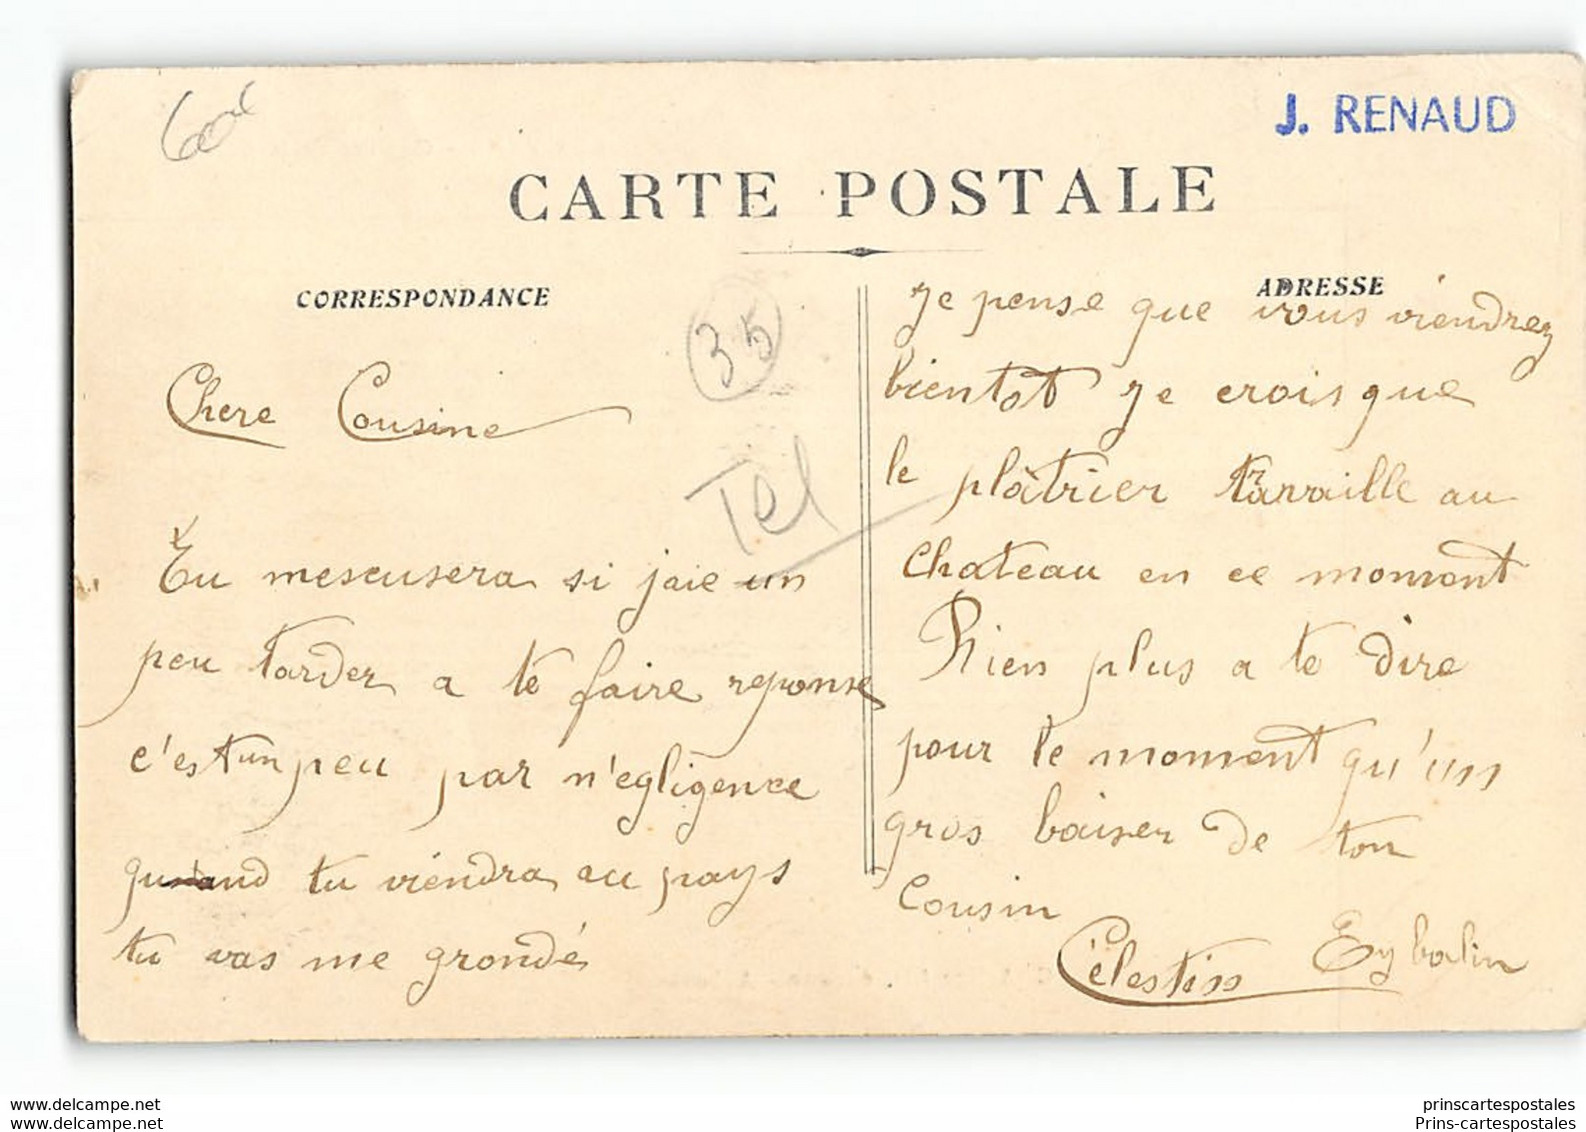 600f
J. RENAUD
CARTE POSTALE
CORRESPONDANCE
35
Tel
Chere Cousine
Tu mescusera si jaie un
peu tarder a te faire reponse
c'est un peu par n'egligence
quand tu viendra au pays
tu vas me grondé
ADRESSE
Je pense que vous viendrez
bientot Je crois que
le plâtrier travaille au
chateau en ce moment
Rien plus a te dire
pour le moment qu'un
gros baiser de ton
Cousin
Célestin Eybalin
www.delcampe.net
www.delcampe.net
prinscartespostales
Prins-cartespostales